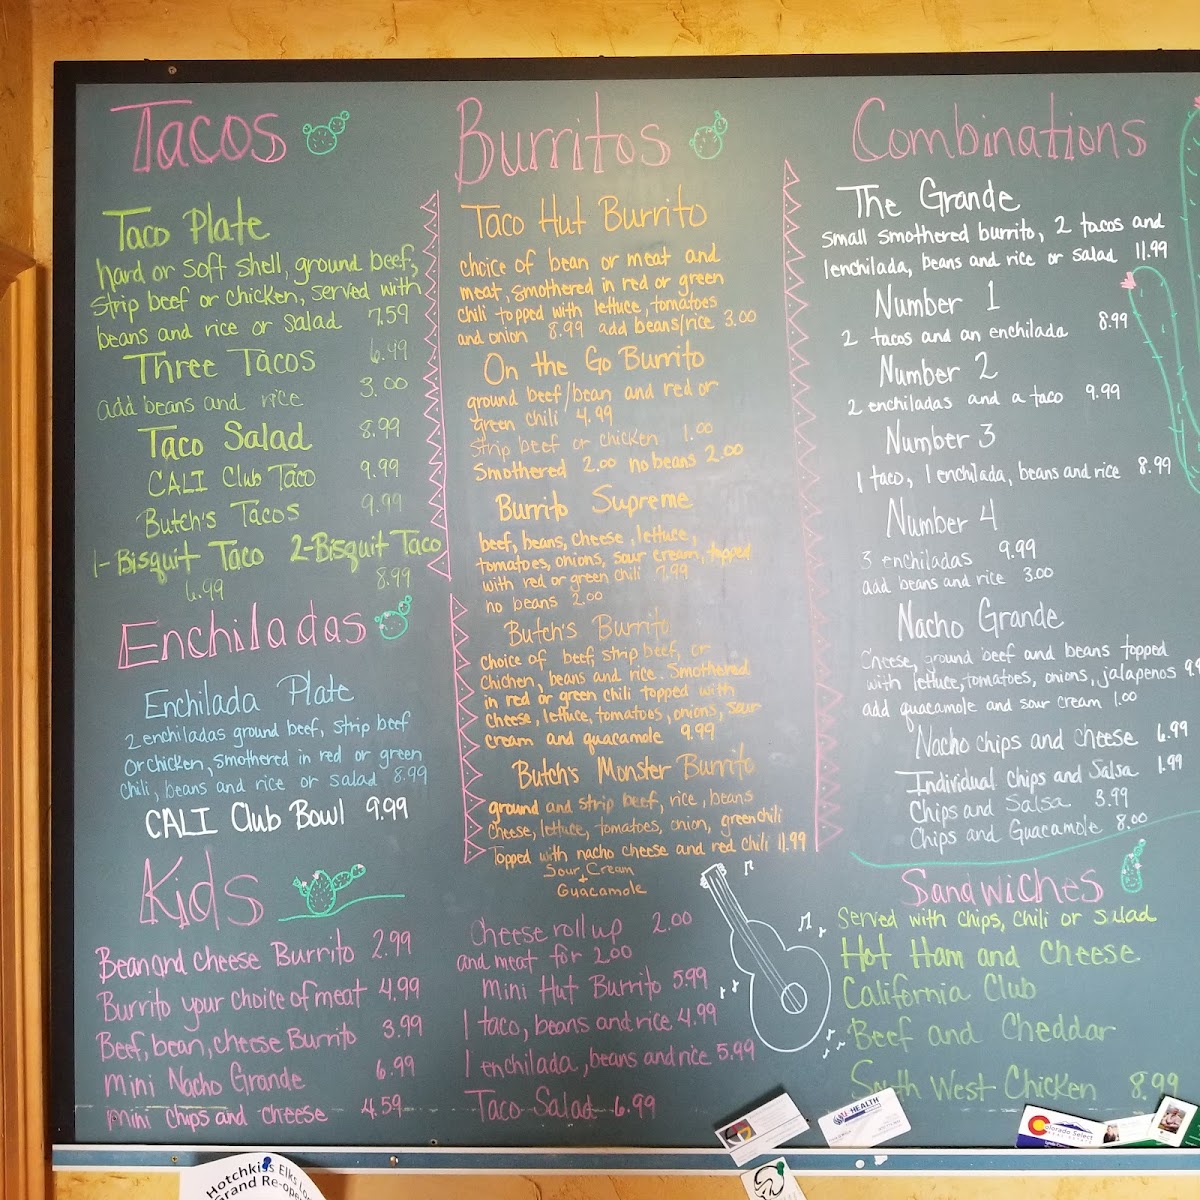 Tacos
Taco Plate
hard or soft shell, ground beef,
strip beef or chicken, served with
beans and rice or salad 7.59
Three Tacos 6.49
add beans and rice 3.00
Taco Salad 8.99
CALI Club Taco 9.99
Butch's Tacos 9.99
1-Bisquit Taco 2-Bisquit Taco
6.99 8.99
Enchiladas
Enchilada Plate
2 enchiladas ground beef, strip beef
or chicken, smothered in red or green
chili, beans and rice or salad 8.99
CALI Club Bowl 9.99
Kids
Bean and cheese Burrito 2.99
Burrito your choice of meat 4.99
Beef, bean, cheese Burrito 3.99
mini Nacho Grande 6.99
mini chips and cheese 4.59
Burritos
Taco Hut Burrito
choice of bean or meat and
meat, smothered in red or green
chili topped with lettuce, tomatoes
and onion 8.99 add beans/rice 3.00
On the Go Burrito
ground beef/bean and red or
green chili 4.99
strip beef or chicken 1.00
Smothered 2.00 no beans 2.00
Burrito Supreme
beef, beans, cheese, lettuce,
tomatoes, onions, sour cream, topped
with red or green chili 7.99
no beans 2.00
Butch's Burrito
choice of beef, strip beef, or
chichen, beans and rice. Smothered
in red or green chili topped with
cheese, lettuce, tomatoes, onions, sour
cream and guacamole 9.99
Butch's Monster Burrito
ground and strip beef, rice, beans
cheese, lettuce, tomatoes, onion, green chili
Topped with nacho cheese and red chili 11.99
Sour Cream
+
Guacamole
Cheese roll up 2.00
and meat for 2.00
mini Hut Burrito 5.99
1 taco, beans and rice 4.99
1 enchilada, beans and rice 5.99
Taco Salad 6.99
Combinations
The Grande
small smothered burrito, 2 tacos and
1enchilada, beans and rice or salad 11.99
Number 1
2 tacos and an enchilada 8.99
Number 2
2 enchiladas and a taco 9.99
Number 3
1 taco, 1 enchilada, beans and rice 8.99
Number 4
3 enchiladas 9.99
add beans and rice 3.00
Nacho Grande
Cheese, ground beef and beans topped
with lettuce, tomatoes, onions, jalapenos
add guacamole and sour cream 1.00
Nacho chips and cheese 6.99
Individual Chips and Salsa 1.99
Chips and Salsa 3.99
Chips and Guacamole 8.00
Sandwiches
Served with chips, chili or salad
Hot Ham and Cheese
California Club
Beef and Cheddar
South West Chicken 8.99
HEALTH
Colorado Select
Hotchkiss Elks Lo
Grand Re-ope